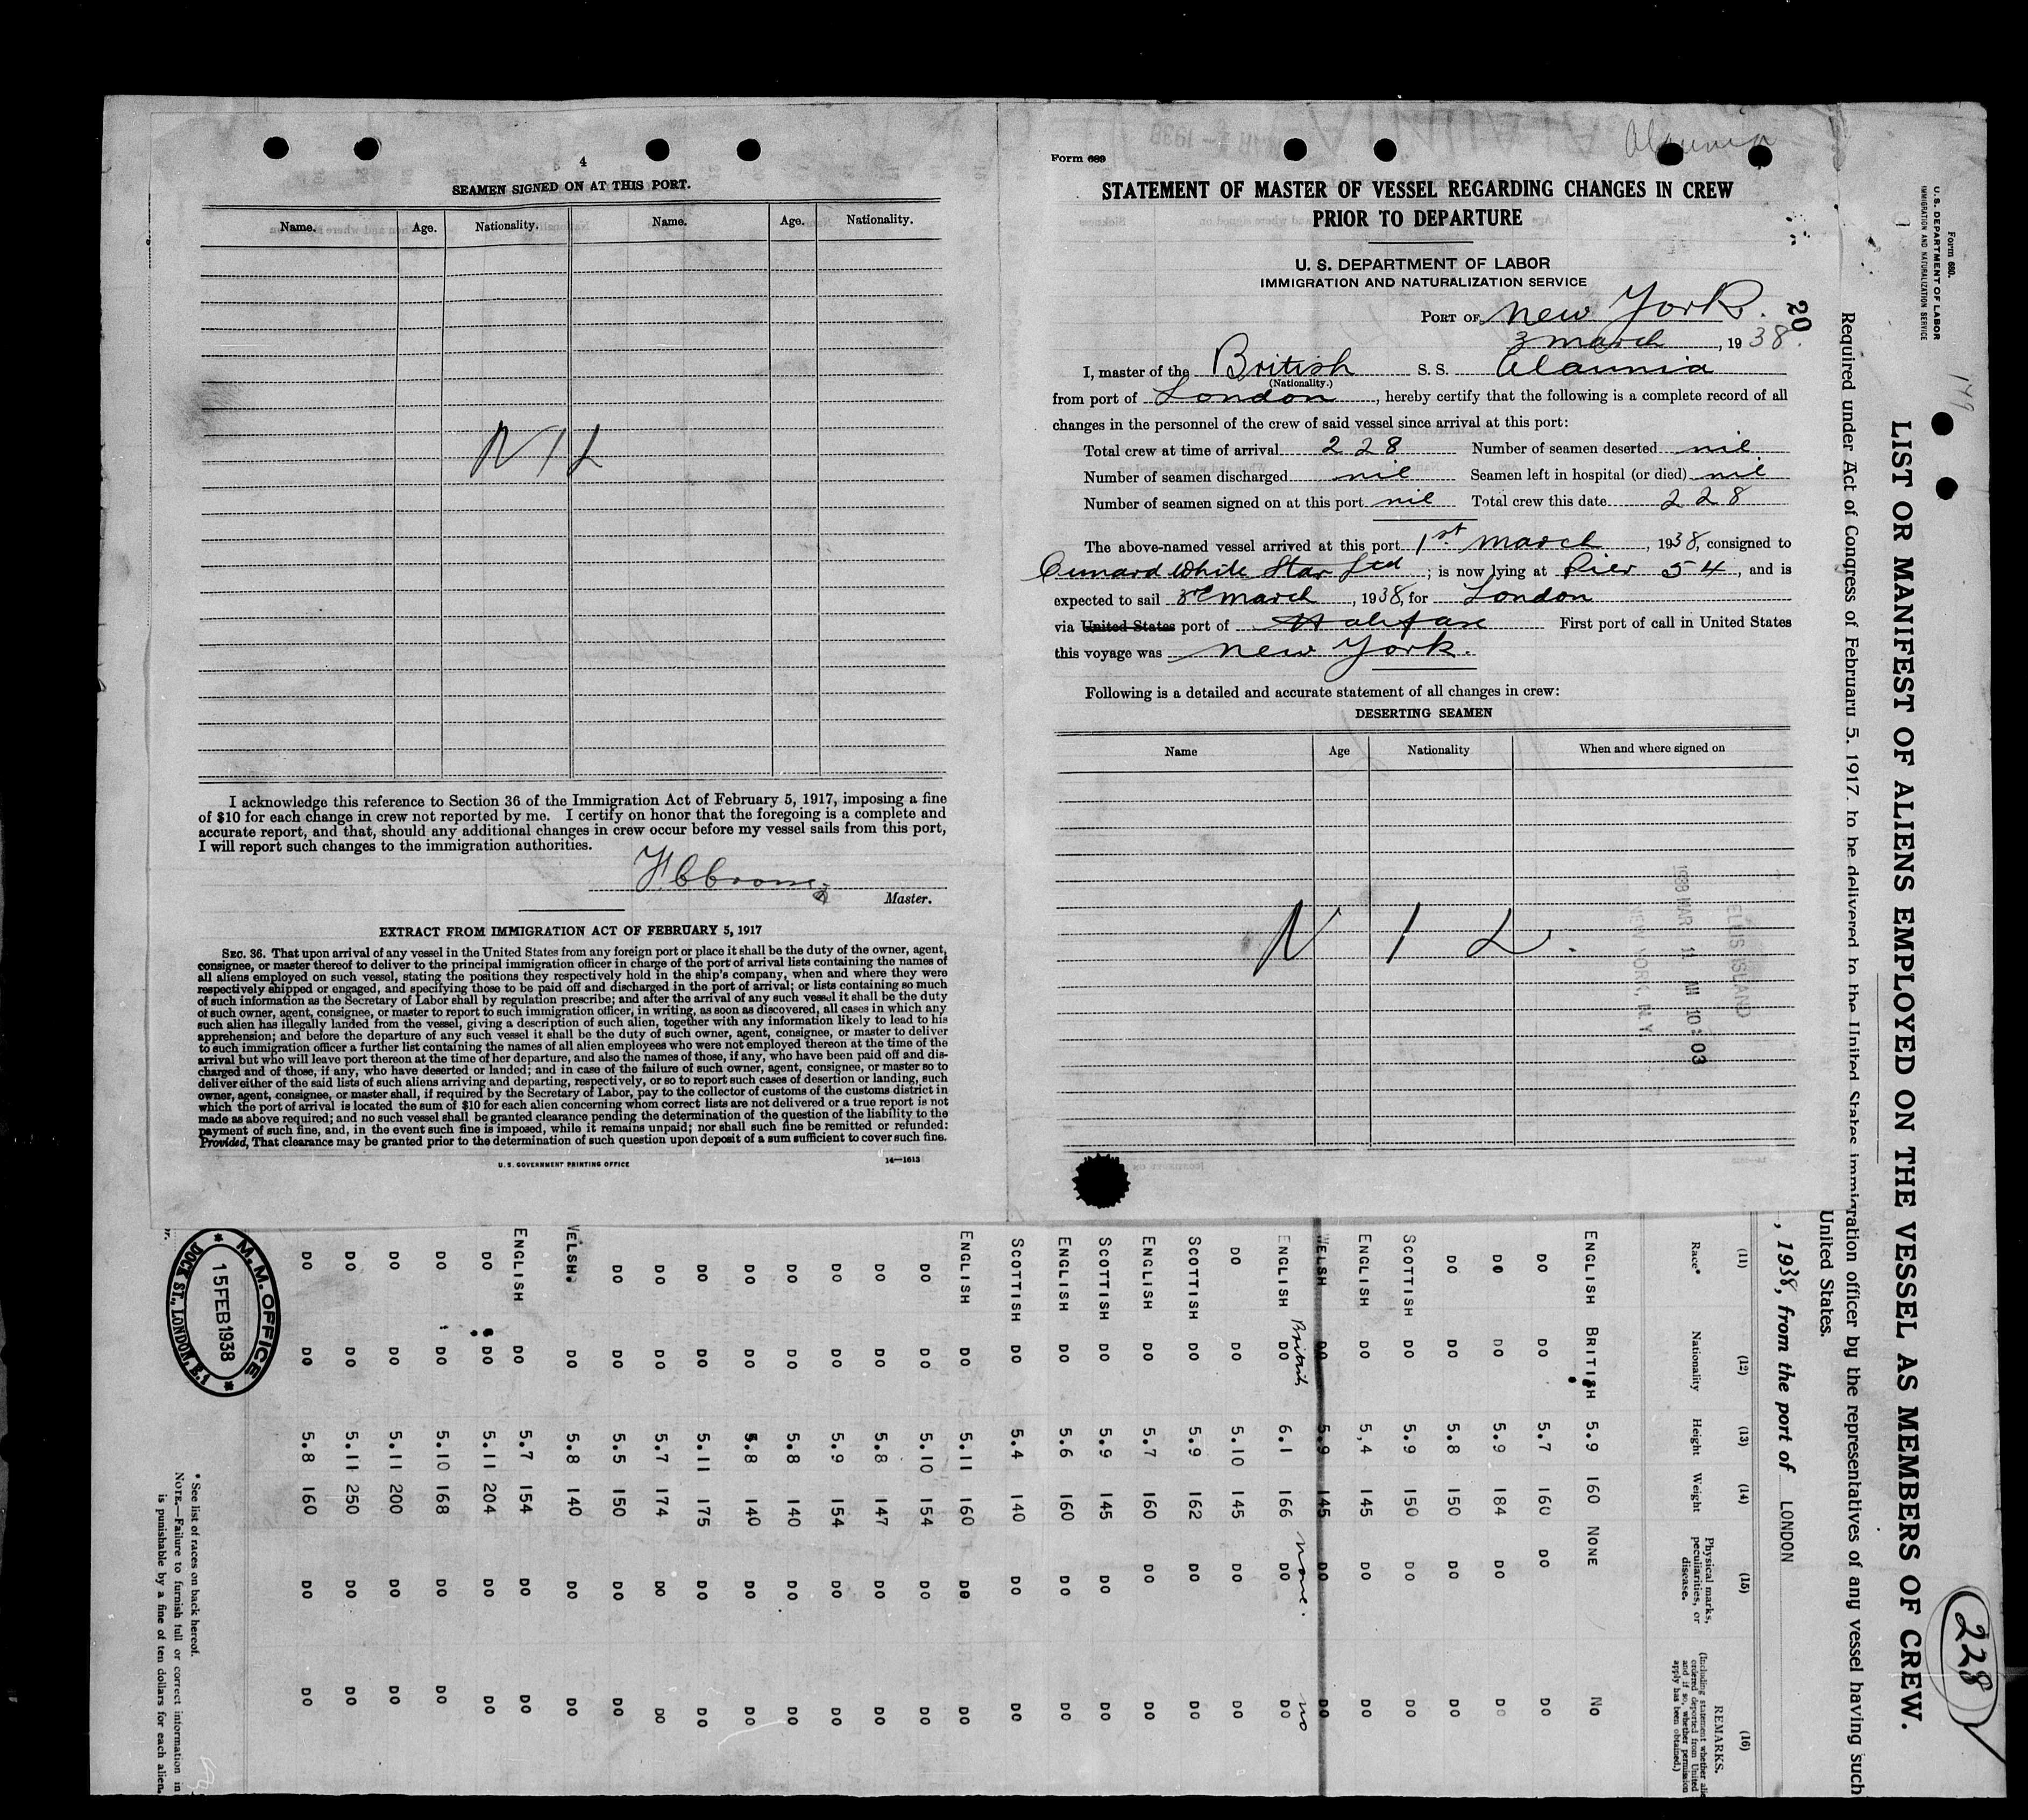 4
SEAMEN SIGNED ON AT THIS PORT.
Name. Age. Nationality. Name. Age. Nationality.
NIL
I acknowledge this reference to Section 36 of the Immigration Act of February 5, 1917, imposing a fine
of $10 for each change in crew not reported by me. I certify on honor that the foregoing is a complete and
accurate report, and that, should any additional changes in crew occur before my vessel sails from this port,
I will report such changes to the immigration authorities.
Master.
EXTRACT FROM IMMIGRATION ACT OF FEBRUARY 5, 1917
SEC. 36. That upon arrival of any vessel in the United States from any foreign port or place it shall be the duty of the owner, agent,
consignee, or master thereof to deliver to the principal immigration officer in charge of the port of arrival lists containing the names of
all aliens employed on such vessel, stating the positions they respectively hold in the ship's company, when and where they were
respectively shipped or engaged, and specifying those to be paid off and discharged in the port of arrival; or lists containing so much
of such information as the Secretary of Labor shall by regulation prescribe; and after the arrival of any such vessel it shall be the duty
of such owner, agent, consignee, or master to report to such immigration officer, in writing, as soon as discovered, all cases in which any
such alien has illegally landed from the vessel, giving a description of such alien, together with any information likely to lead to his
apprehension; and before the departure of any such vessel it shall be the duty of such owner, agent, consignee, or master to deliver
to such immigration officer a further list containing the names of all alien employees who were not employed thereon at the time of the
arrival but who will leave port thereon at the time of her departure, and also the names of those, if any, who have been paid off and dis-
charged and of those, if any, who have deserted or landed; and in case of the failure of such owner, agent, consignee, or master so to
deliver either of the said lists of such aliens arriving and departing, respectively, or so to report such cases of desertion or landing, such
owner, agent, consignee, or master shall, if required by the Secretary of Labor, pay to the collector of customs of the customs district in
which the port of arrival is located the sum of $10 for each alien concerning whom correct lists are not delivered or a true report is not
made as above required; and no such vessel shall be granted clearance pending the determination of the question of the liability to the
payment of such fine, and, in the event such fine is imposed, while it remains unpaid; nor shall such fine be remitted or refunded:
Provided, That clearance may be granted prior to the determination of such question upon deposit of a sum sufficient to cover such fine.
U. S. GOVERNMENT PRINTING OFFICE 14—1613
Alaunia
Form 689
STATEMENT OF MASTER OF VESSEL REGARDING CHANGES IN CREW
PRIOR TO DEPARTURE
U. S. DEPARTMENT OF LABOR
IMMIGRATION AND NATURALIZATION SERVICE
PORT OF New York.
3 March, 1938.
20
I, master of the British S. S. Alaunia
(Nationality.)
from port of London, hereby certify that the following is a complete record of all
changes in the personnel of the crew of said vessel since arrival at this port:
Total crew at time of arrival 228 Number of seamen deserted nil
Number of seamen discharged nil Seamen left in hospital (or died) nil
Number of seamen signed on at this port nil Total crew this date 228
The above-named vessel arrived at this port 1st March, 1938, consigned to
Cunard White Star Ltd; is now lying at Pier 54, and is
expected to sail 3rd March, 1938, for London
via United States port of Halifax First port of call in United States
this voyage was New York.
Following is a detailed and accurate statement of all changes in crew:
DESERTING SEAMEN
Name Age Nationality When and where signed on
NIL.
ELLIS ISLAND
1938 MAR 11 AM 10:03
NEW YORK, N.Y.
Form 680.
U. S. DEPARTMENT OF LABOR
IMMIGRATION AND NATURALIZATION SERVICE
149
228
LIST OR MANIFEST OF ALIENS EMPLOYED ON THE VESSEL AS MEMBERS OF CREW.
Required under Act of Congress of February 5, 1917, to be delivered to the United States immigration officer by the representatives of any vessel having such
United States.
, 1938, from the port of LONDON
(11) (12) (13) (14) (15) (16)
Race* Nationality Height Weight Physical marks, peculiarities, or disease. REMARKS.
ENGLISH BRITISH 5.9 160 NONE NO
DO DO 5.7 160 DO DO
DO DO 5.9 184 DO DO
DO DO 5.8 150 DO DO
SCOTTISH DO 5.9 150 DO DO
ENGLISH DO 5,4 145 DO DO
WELSH DO 5.9 145 DO DO
British none. no
ENGLISH DO 6.1 166 DO DO
DO DO 5.10 145 DO DO
SCOTTISH DO 5.9 162 DO DO
ENGLISH DO 5.7 160 DO DO
SCOTTISH DO 5.9 145 DO DO
ENGLISH DO 5.6 160 DO DO
SCOTTISH DO 5.4 140 DO DO
ENGLISH DO 5.11 160 DO DO
DO DO 5.10 154 DO DO
DO DO 5.8 147 DO DO
DO DO 5.9 154 DO DO
DO DO 5.8 140 DO DO
DO DO 5.8 140 DO DO
DO DO 5.11 175 DO DO
DO DO 5.7 174 DO DO
DO DO 5.5 150 DO DO
WELSH. DO 5.8 140 DO DO
ENGLISH DO 5.7 154 DO DO
DO DO 5.11 204 DO DO
DO DO 5.10 168 DO DO
DO DO 5.11 200 DO DO
DO DO 5.11 250 DO DO
DO DO 5.8 160 DO DO
M.M. OFFICE
15 FEB 1938
DOCK ST., LONDON, E.1
* See list of races on back hereof.
NOTE.—Failure to furnish full or correct information in
is punishable by a fine of ten dollars for each alien.